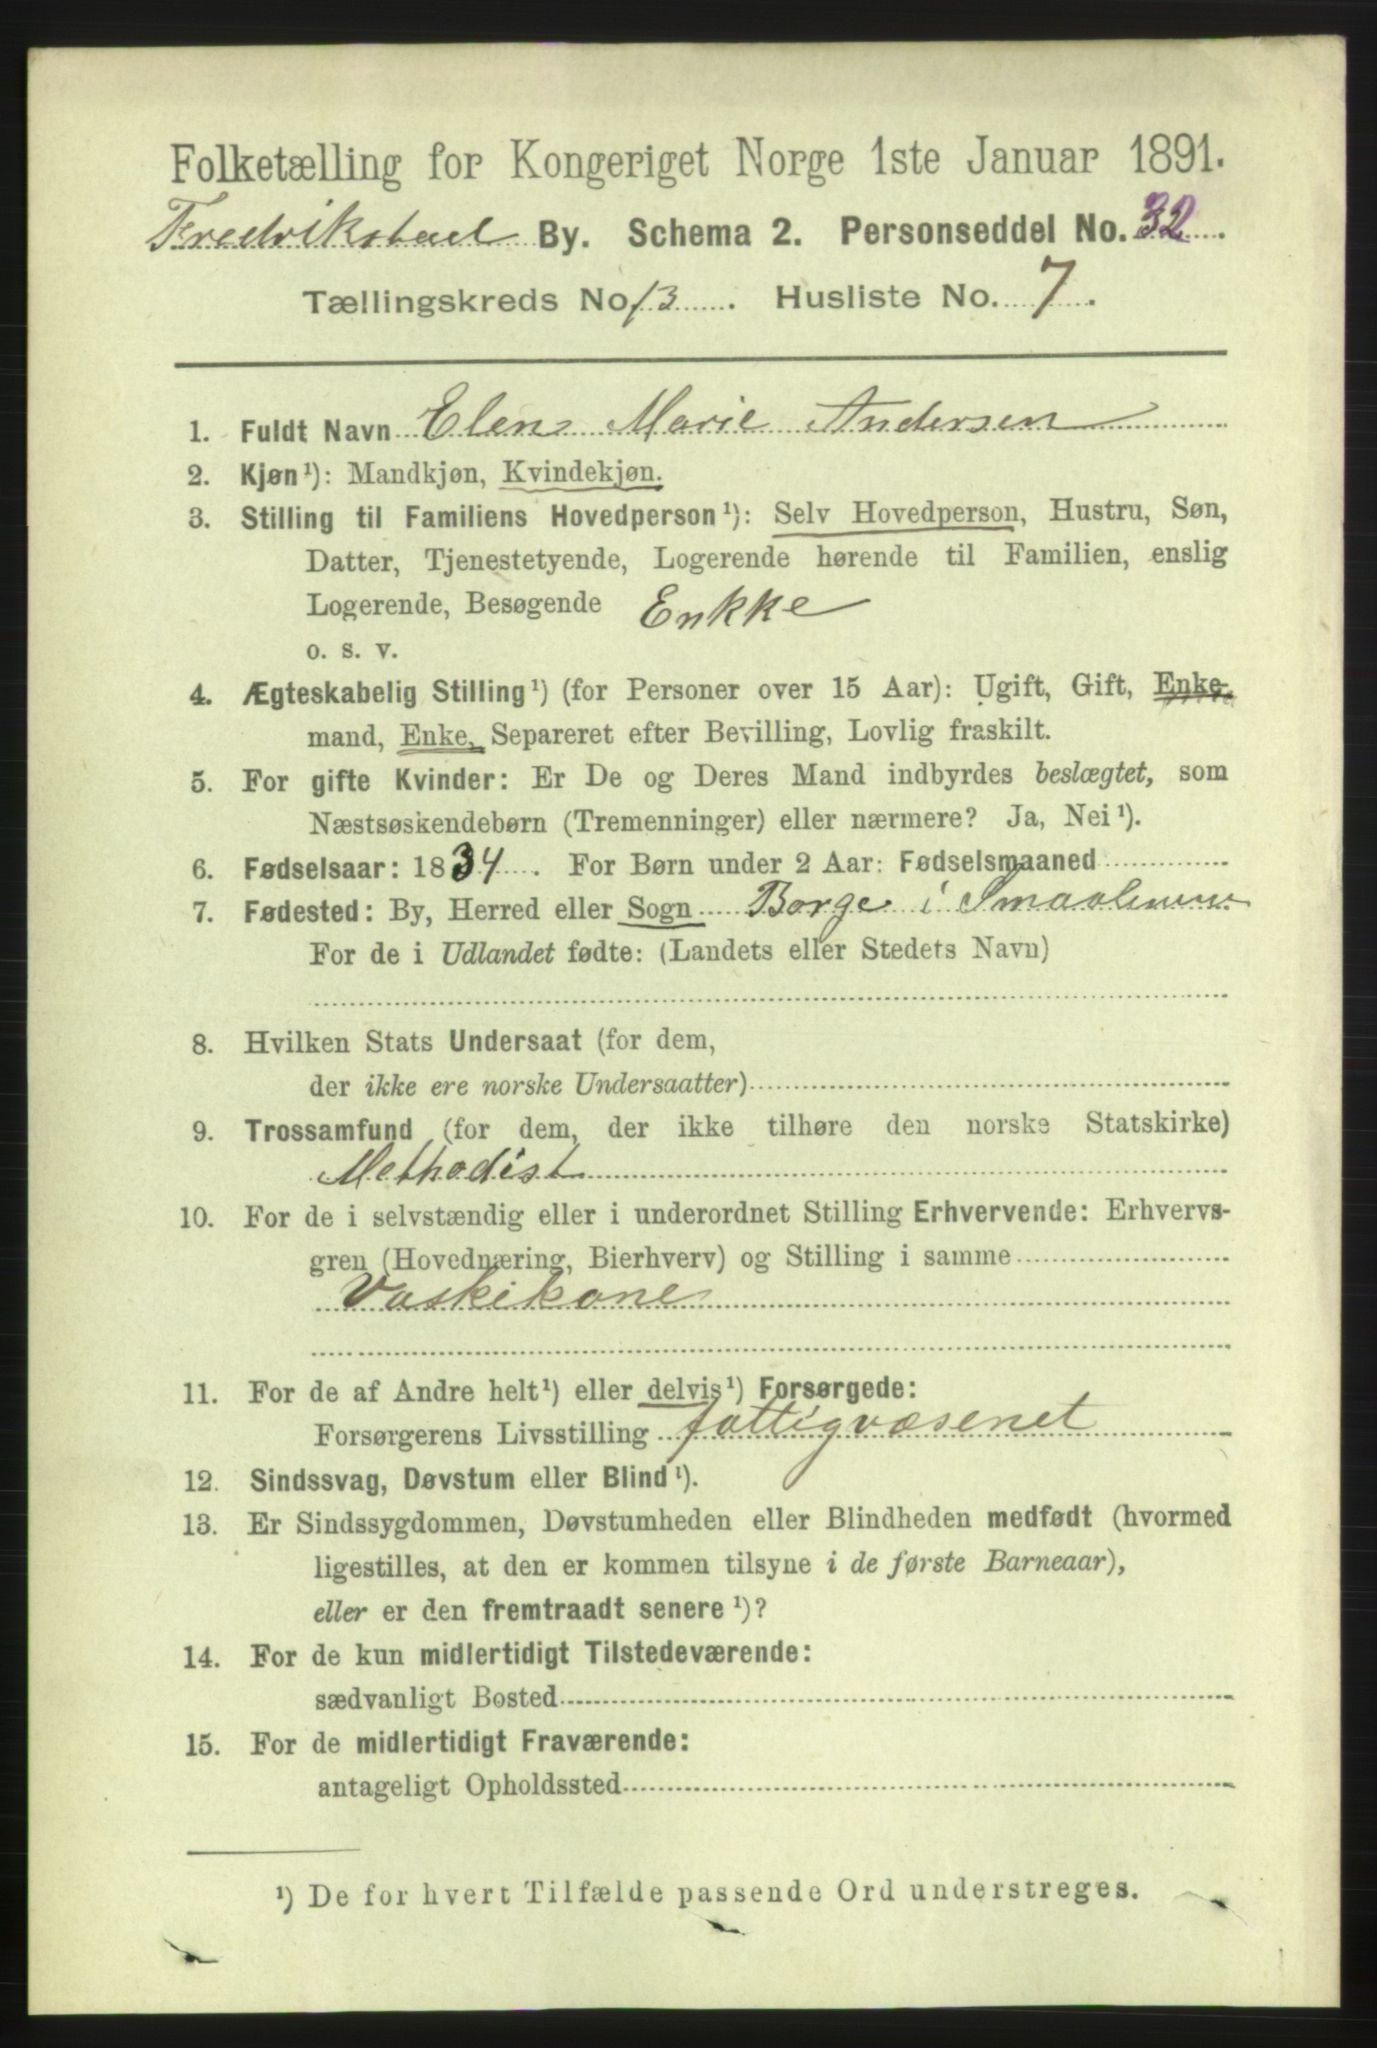 Folketælling for Kongeriget Norge 1ste Januar 1891.
Fredrikstad By. Schema 2. Personseddel No. 32.
Tællingskreds No. 13. Husliste No. 7.
1. Fuldt Navn Elen Marie Andersen
2. Kjøn¹): Mandkjøn, Kvindekjøn.
3. Stilling til Familiens Hovedperson¹): Selv Hovedperson, Hustru, Søn,
Datter, Tjenestetyende, Logerende hørende til Familien, enslig
Logerende, Besøgende Enkke
o. s. v.
4. Ægteskabelig Stilling¹) (for Personer over 15 Aar): Ugift, Gift, Enke-
mand, Enke, Separeret efter Bevilling, Lovlig fraskilt.
5. For gifte Kvinder: Er De og Deres Mand indbyrdes beslægtet, som
Næstsøskendebørn (Tremenninger) eller nærmere? Ja, Nei¹).
6. Fødselsaar: 1834. For Børn under 2 Aar: Fødselsmaaned
7. Fødested: By, Herred eller Sogn Borge i Smaalenene
For de i Udlandet fødte: (Landets eller Stedets Navn)
8. Hvilken Stats Undersaat (for dem,
der ikke ere norske Undersaatter)
9. Trossamfund (for dem, der ikke tilhøre den norske Statskirke)
Methodist
10. For de i selvstændig eller i underordnet Stilling Erhvervende: Erhvervs-
gren (Hovednæring, Bierhverv) og Stilling i samme
Vaskikone
11. For de af Andre helt¹) eller delvis¹) Forsørgede:
Forsørgerens Livsstilling fattigvæsenet
12. Sindssvag, Døvstum eller Blind¹).
13. Er Sindssygdommen, Døvstumheden eller Blindheden medfødt (hvormed
ligestilles, at den er kommen tilsyne i de første Barneaar),
eller er den fremtraadt senere¹)?
14. For de kun midlertidigt Tilstedeværende:
sædvanligt Bosted
15. For de midlertidigt Fraværende:
antageligt Opholdssted
¹) De for hvert Tilfælde passende Ord understreges.